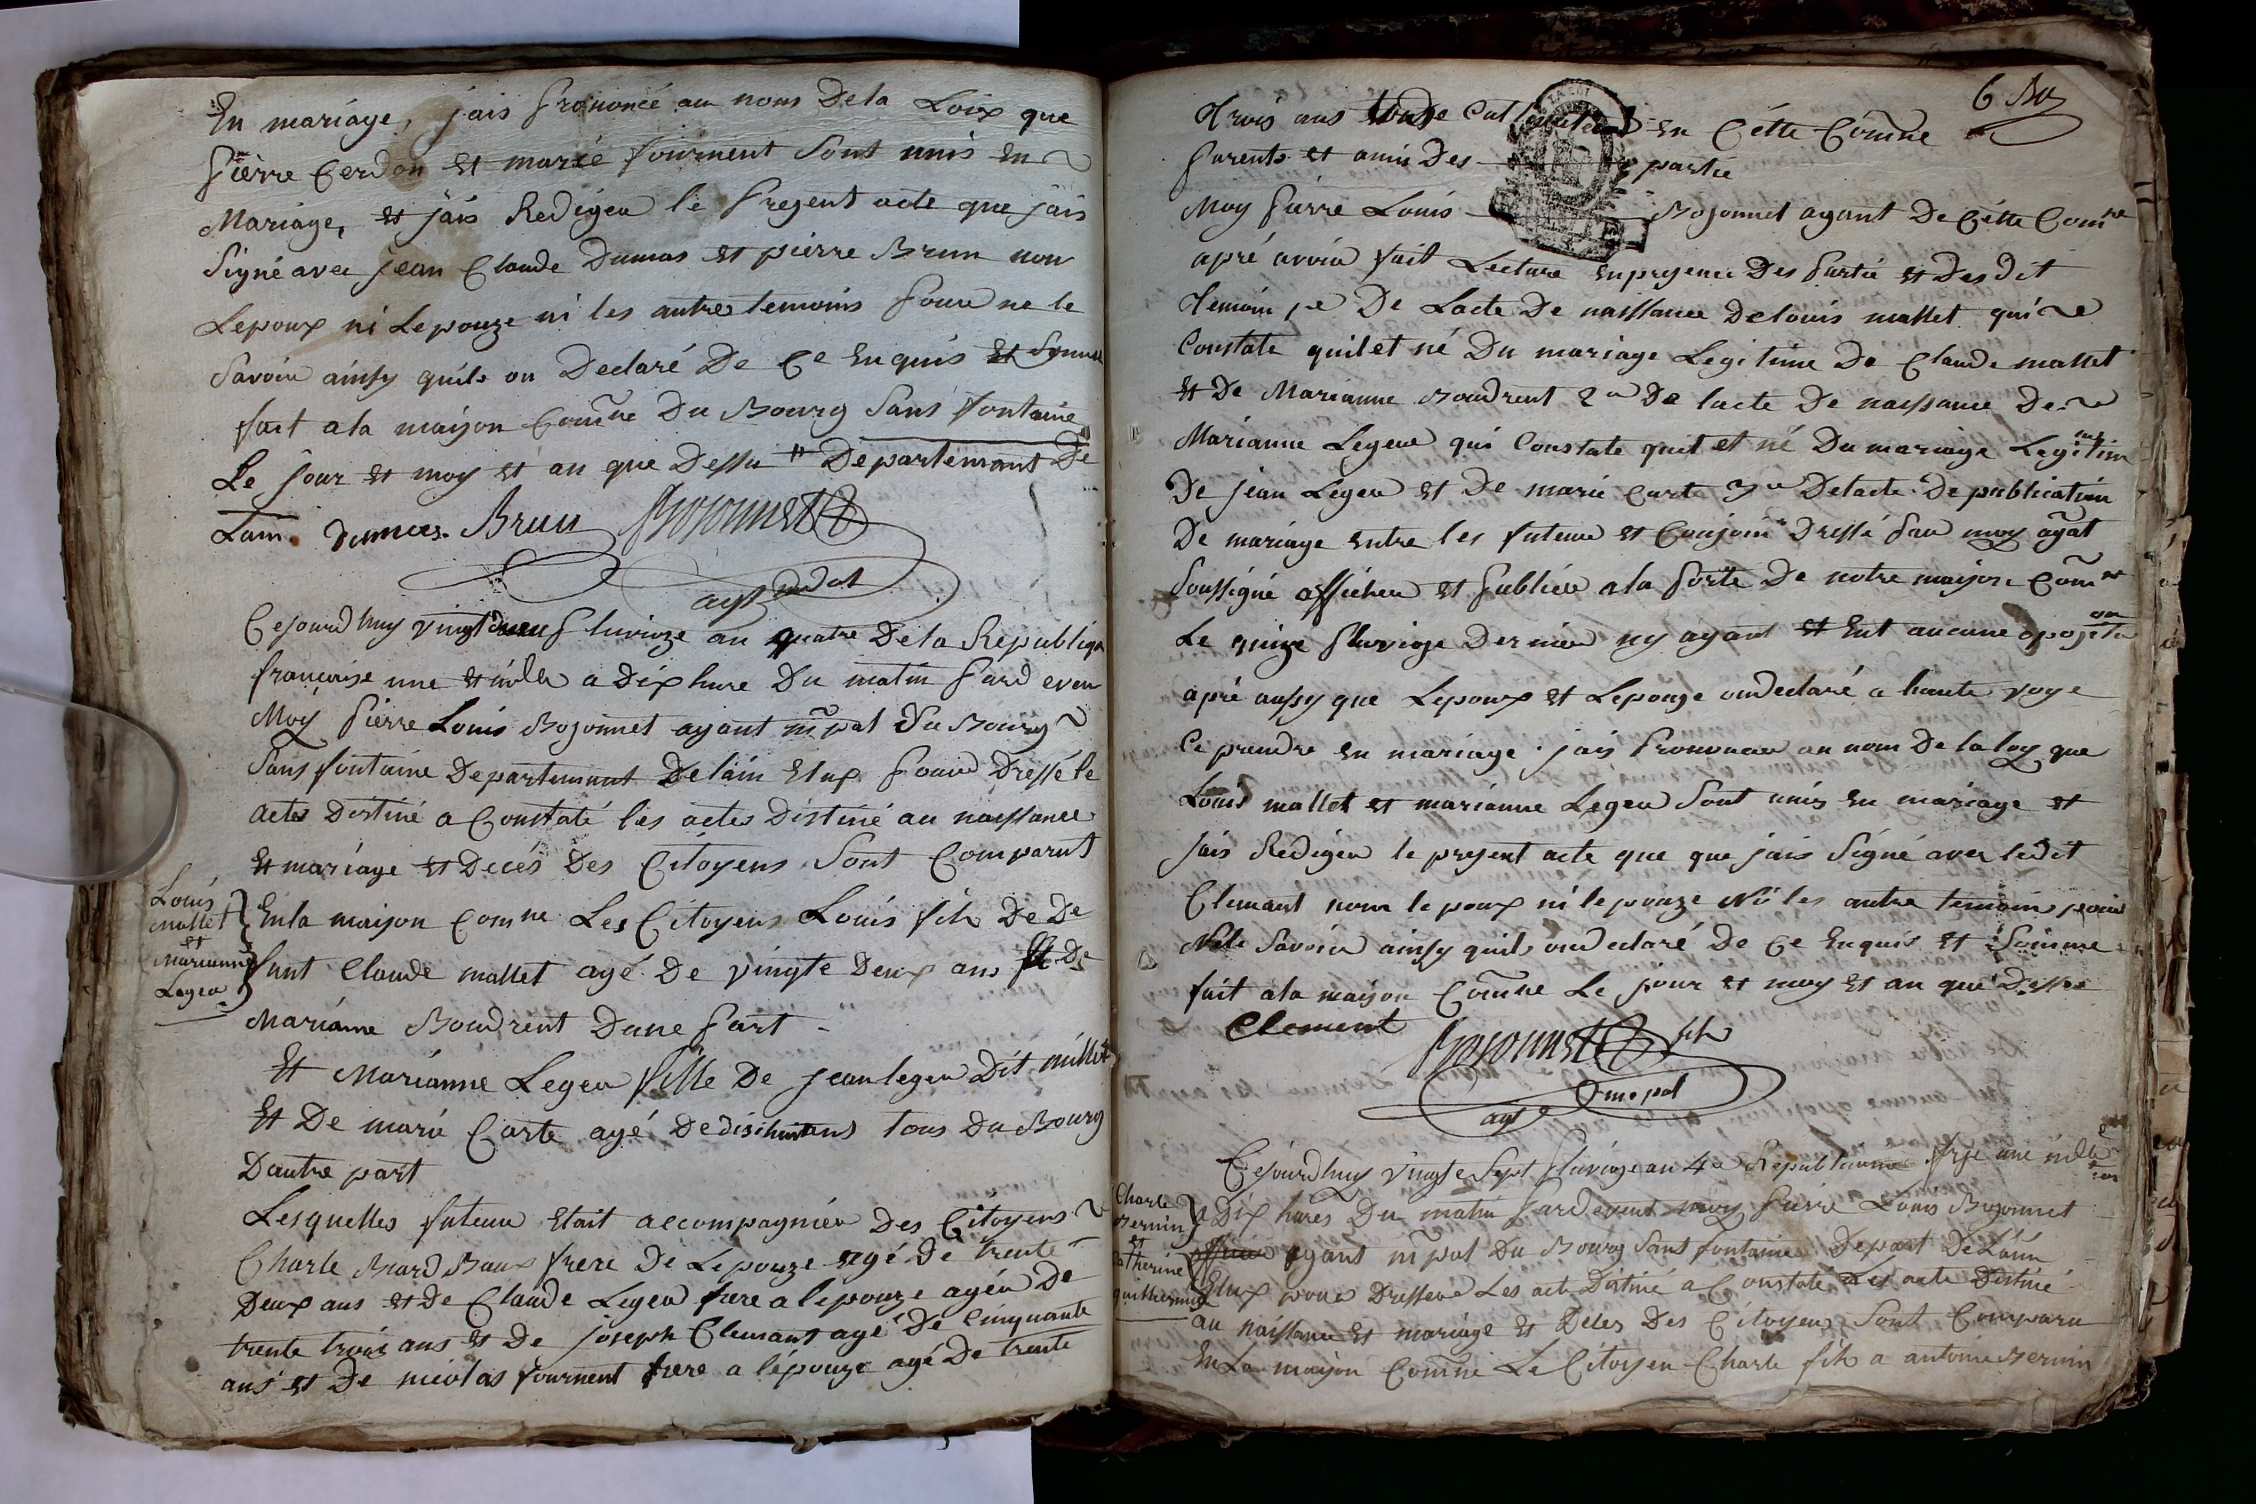 En mariage, jais prononcé au nom Dela Loix que
pierre Cerdon Et marie fourment Sont unis En
Mariage, Et jais Redigea le present acte que jais
Signé avec jean Claude Dumas Et pierre Brun non
Lepoux ni Lepouze ni les autre temoins pour ne le
Savoir ainsy quils on Declaré De Ce Enquis Et
fait ala maison Comne Du Bourg Sans fontaine
Le jour Et moy Et an que Dessu " Departemant De
Lain Dumas. Brun Bojonnet
agt
Cejourdhuy vingt pluvioze an quatre Dela Republiqe
francaise une Et indlle a Dix hure Du matin pard even
Moy pierre Louis Bojonnet agant mpal Du Bourg
Sans fontaine Departemant Delain Elux pour Dressé le
actes Destiné a Constaté les actes Destiné au naissance
Et mariage Et Decés Des Citoyens Sont Comparut
Louis
mallet
et
Marianne
Legeu
Enla maison Comne Les Citoyens Louis fils De De
funt Claude mallet agé De vingte Deux ans De
Marianne Boudrent Dune part
Et Marianne Legeu fille De jean legeu Dit millet
Et De marie Carte agé De disihuit ans tous Du Bourg
Dautre part
Lesquelles futeur Etait accompagniéu Des Citoyens
Charle Beard Baux frere De Lepouze agé De trente
Deux ans Et De Claude Legeu frere a lepouze agéu De
trente trois ans Et De joseph Clemant agé De Cinquante
ans Et De nicolas fourment frere a lépouze agé De trente
6 Bo
trois ans En Cétte Comne
parents Et amis Des partie
Moy pierre Louis Bojonnet agant De Cétte Comne
apré avoir fait Lecture En presence Des partie Et Des Dit
temoin De Lacte De naissance De louis mallet qui
Constate quil et né Du mariage Legitime De Claude mallet
Et De Marianne Boudrent 2e De lacte De naissance De
Marianne Legeue qui Constate quit et né Du mariage Legitime
De jean Legeu Et De marie Carte 3e De lacte De publication
De mariage Entre les futeur Et Conjoin Dressé par moy agat
Soussigné afficheu Et publiéu ala porte De notre maison Comne
Le quinze pluvioze Dernier ny ayant Et Eut aucune opozition
apré aussy que Lepoux Et Lepouze on declaré a haute voye
Ce prendre En mariage. jais prononceu au nom De la loy que
Louis mallet et marianne Legeu Sont unis En mariage et
jais Redigeu le present acte que que jais Signé avec ledit
Clemant nom le poux ni lepouze Ni les autre temoins pour
Nele Savoir ainsy quils on declaré De Ce Enquis Et Somme
fait ala maison Comne Le jour Et moy Et an que Dessu
Clement Bojonnet fils
agt mpal
Charle
Bernin
et
Catherine
Cejourdhuy vingte Sept pluvioze an 4e Republicaine frse une indlle
a Dix hures Du matin pardevent moy pierre Louis Bojonnet
agant mpal Du Bourg Sans fontaine Depart De Lain
Elux pour Dresseur Les acte Destiné a Constaté Les acte Destiné
au naissance Et mariage Et Deces Des Citoyens Sont Comparu
En La maison Comne Le Citoyen Charle fils a antoine Bernin